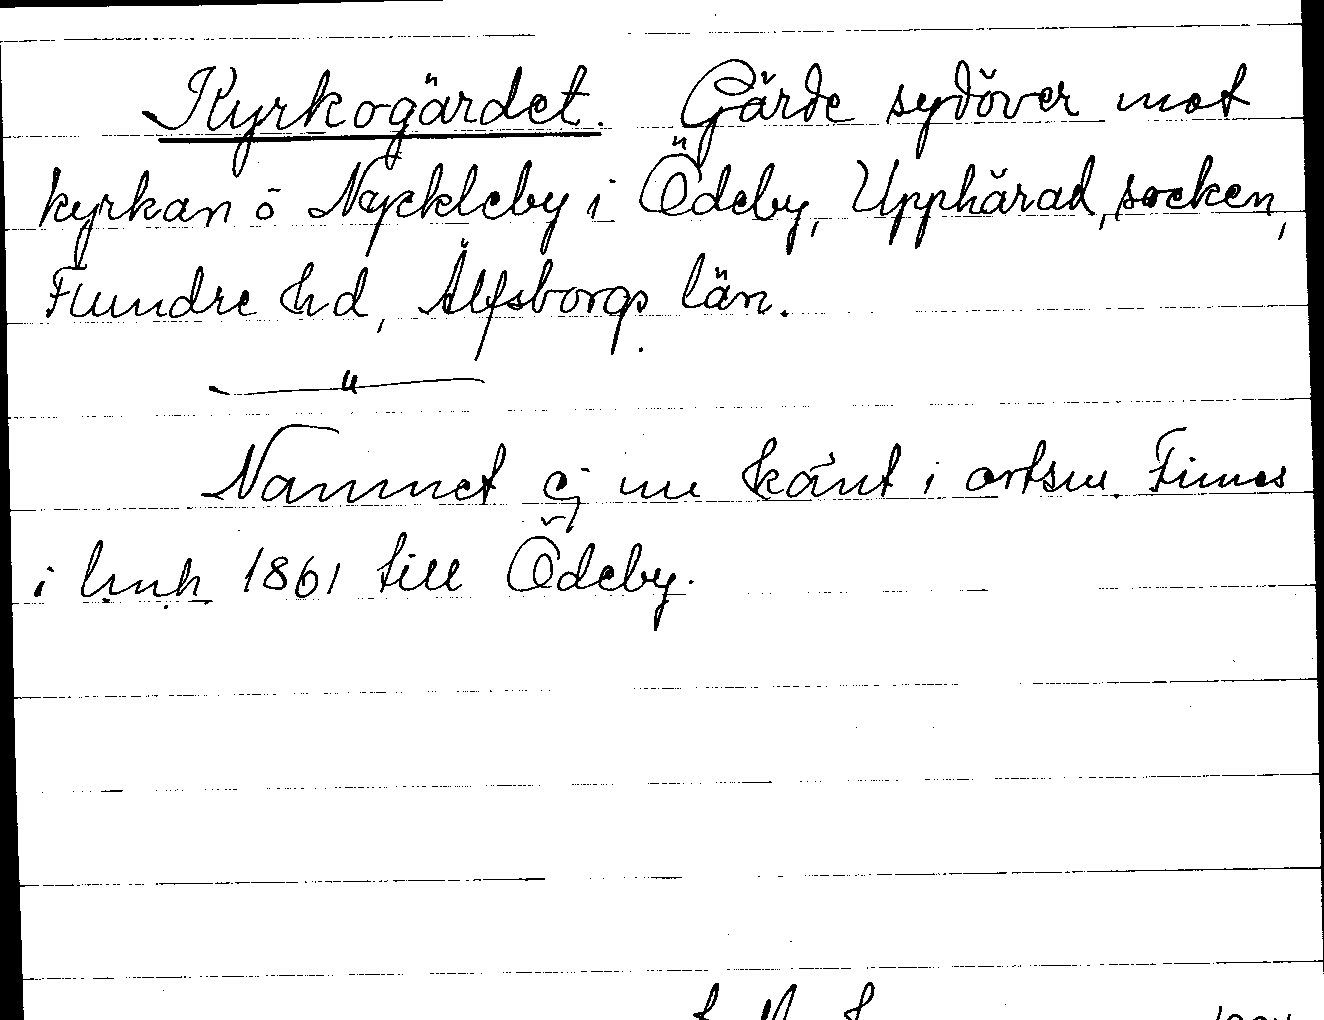 Kyrkogärdet. Gärde sydöver mot
kyrkan ō Nyckleby i Ödeby, Upphärad, socken,
Flundre hd, Älfsborgs län.
"
Namnet ej nu känt i ortsn. Finnes
i lmh 1861 till Ödeby.